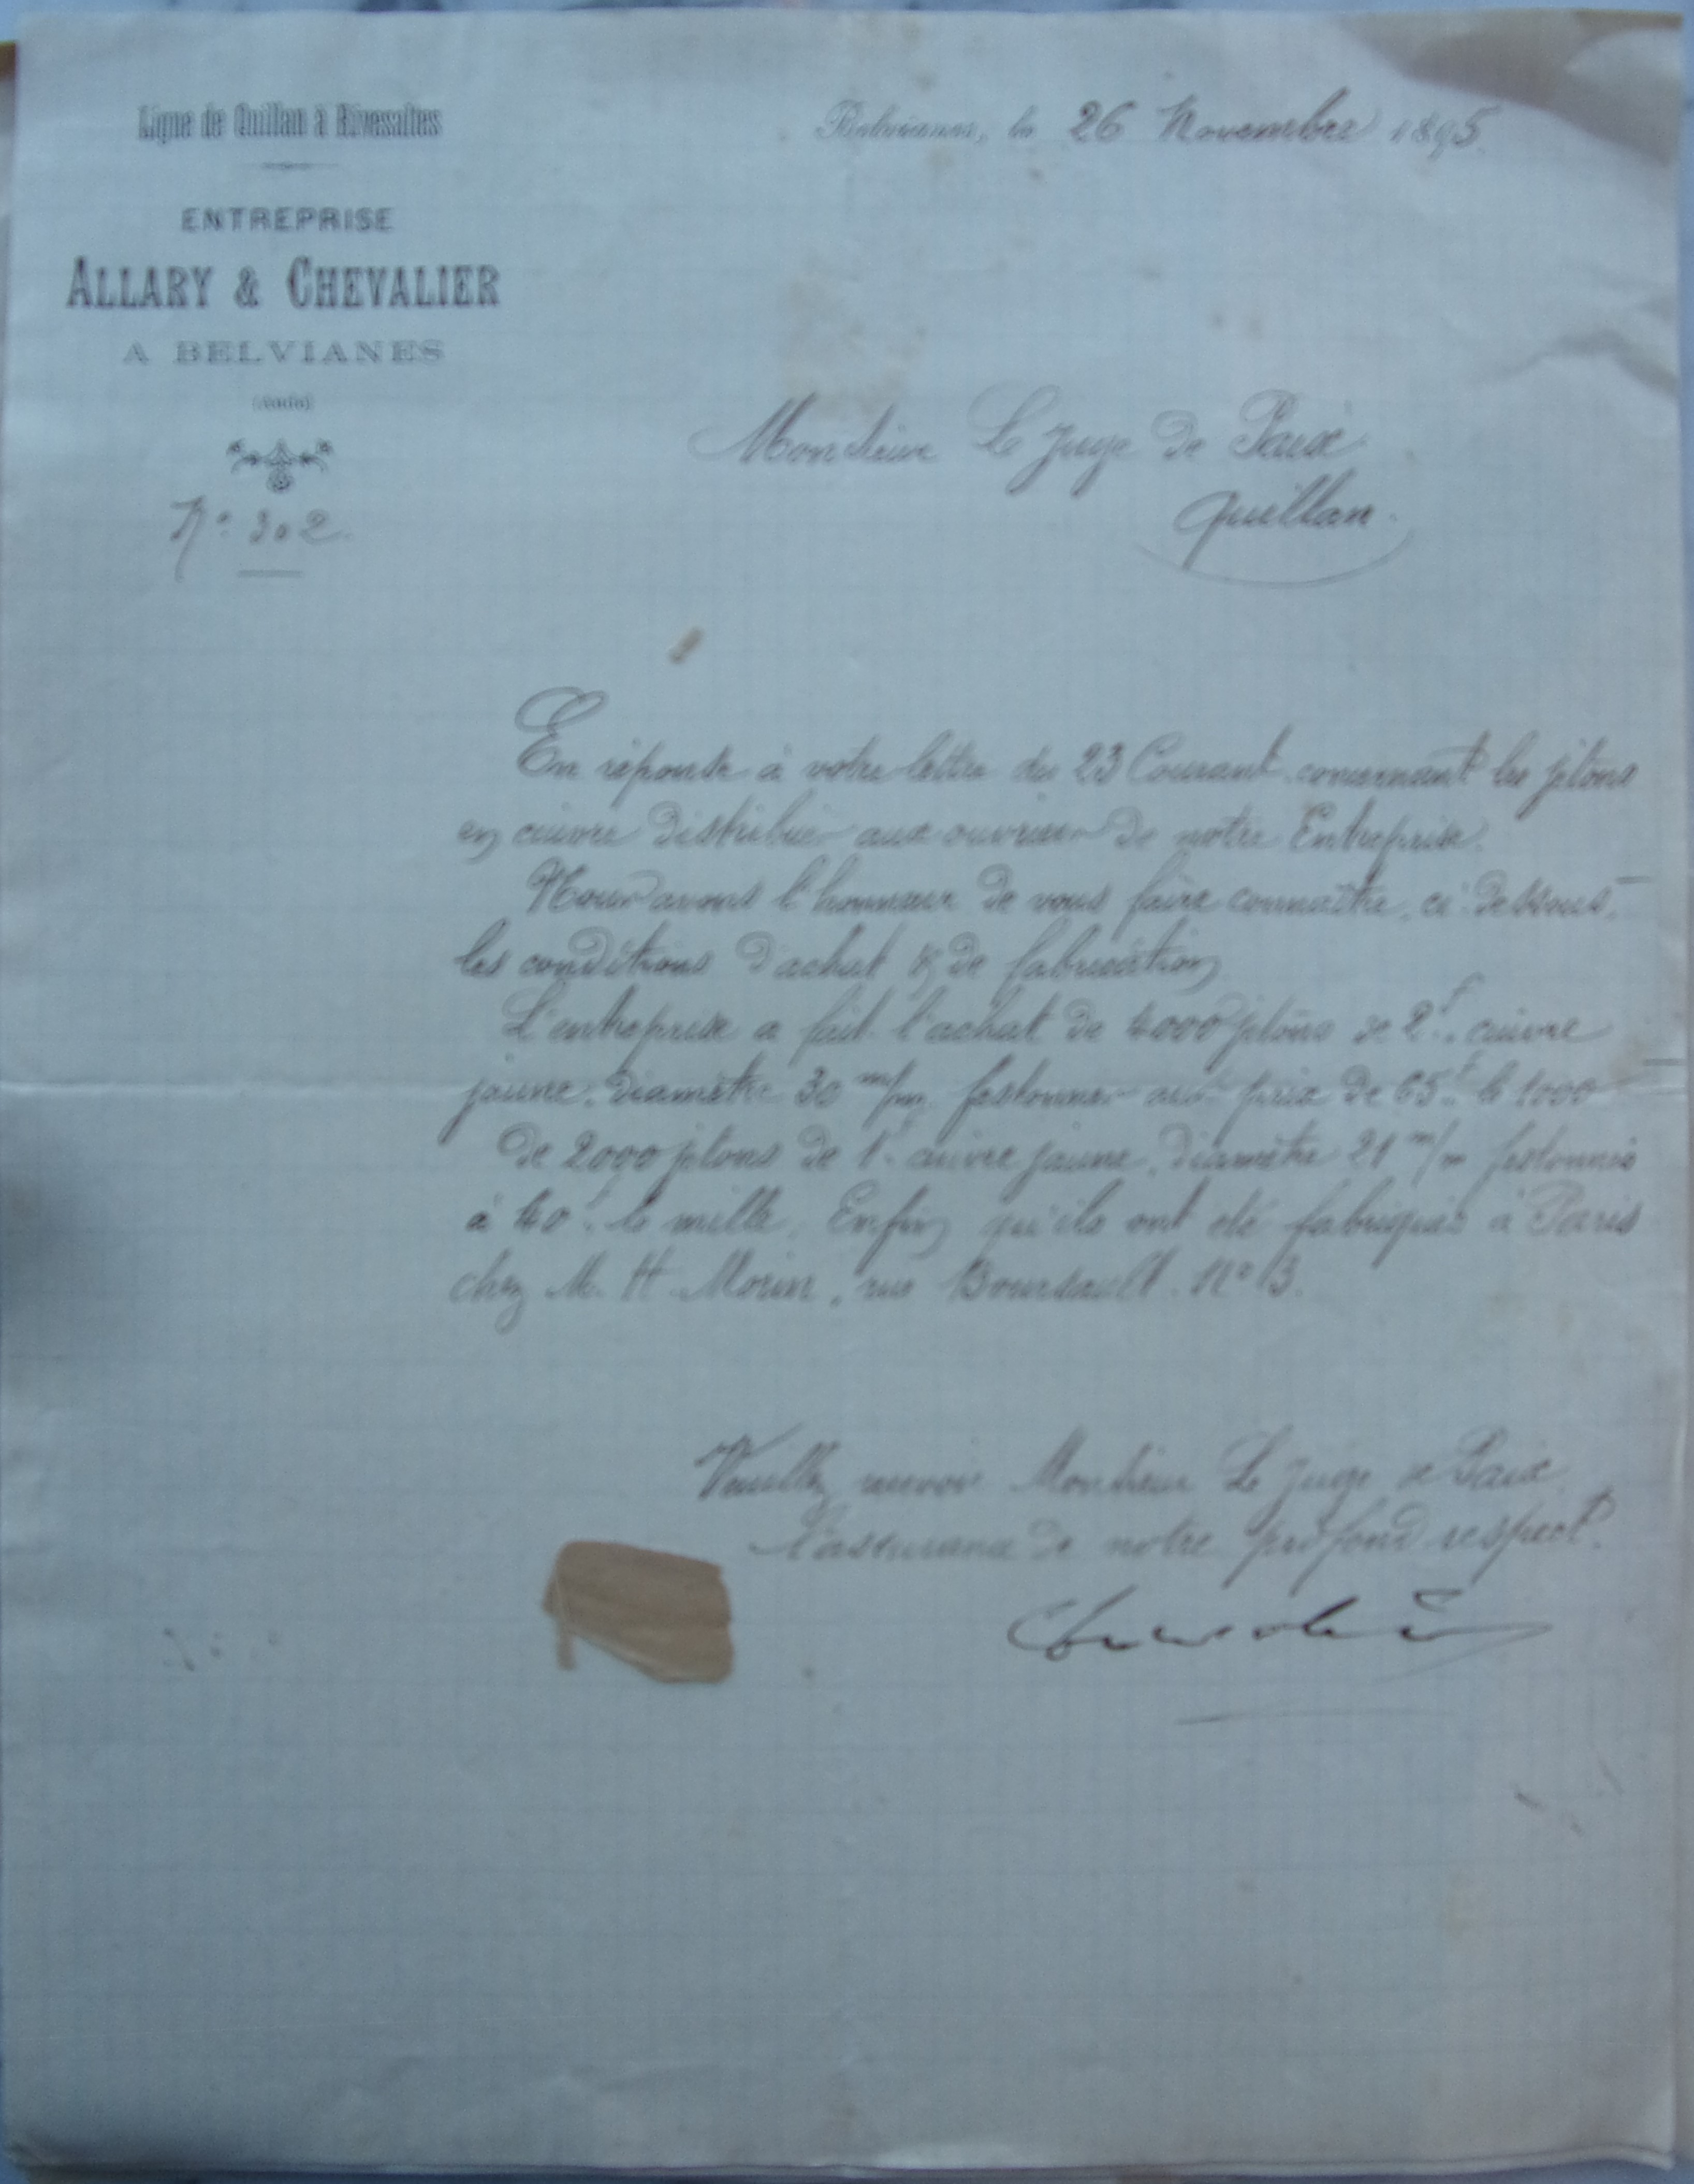 Ligne de Quillan à Rivesaltes
ENTREPRISE
ALLARY & CHEVALIER
A BELVIANES
(Aude)
N° 302
Belvianes, le 26 Novembre 1895
Monsieur Le Juge de Paix
Quillan
En réponse à votre lettre du 23 Courant concernant les jetons
en cuivre distribués aux ouvriers de notre Entreprise.
Nous avons l'honneur de vous faire connaître, ci-dessous,
les conditions d'achat & de fabrication
L'entreprise a fait l'achat de 4000 jetons de 2f. cuivre
jaune, diamètre 30 m/m festonnés au prix de 65f le 1000
de 2000 jetons de 1f cuivre jaune, diamètre 21 m/m festonnés
à 40f le mille. Enfin qu'ils ont été fabriqués à Paris
chez M. H Morin, rue Boursault. N° 3.
Veuillez recevoir Monsieur Le Juge de Paix
l'assurance de notre profond respect.
Chevalier